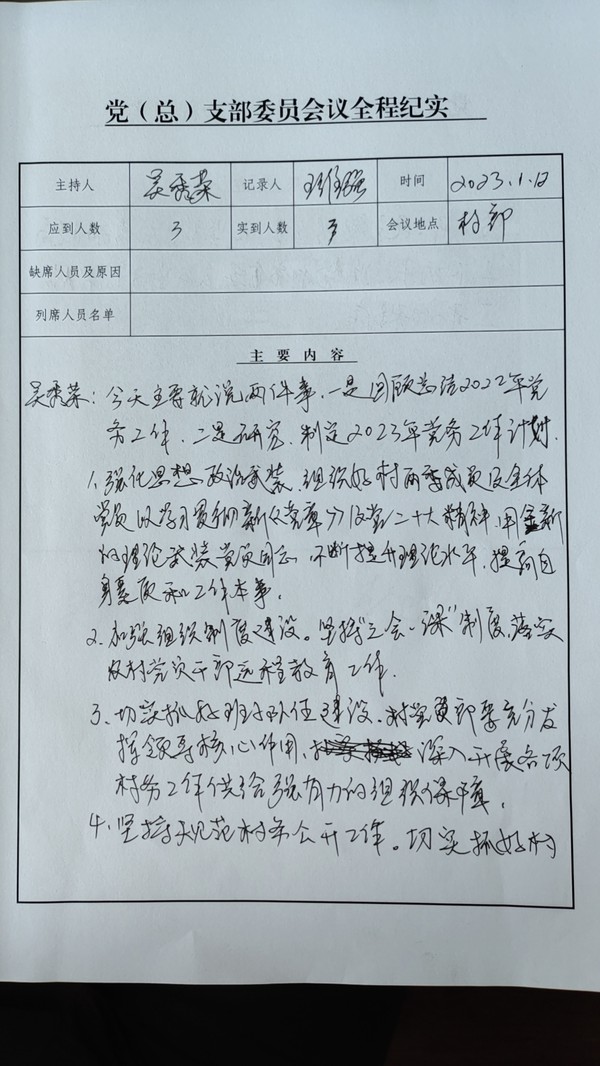 党（总）支部委员会议全程纪实
主持人 吴秀荣 记录人 时间 2023.1.12
应到人数 3 实到人数 3 会议地点 村部
缺席人员及原因
列席人员名单
主要内容
吴秀荣：今天主要就说两件事，一是回顾总结2022年党
务工作，二是研究、制定2023年党务工作计划.
1、强化思想政治武装，组织好村两委成员及全体
党员以学习贯彻新《党章》及党二十大精神，用全新
的理论武装党员同志，不断提升理论水平，提高自
身素质和工作本事。
2、加强组织制度建设。坚持“三会一课”制度，落实
农村党员干部远程教育工作.
3、切实抓好班子队伍建设、村党支部要充分发
挥领导核心作用、深入开展各项
村务工作供给强有力的组织保障，
4、坚持规范村务公开工作。切实抓好村